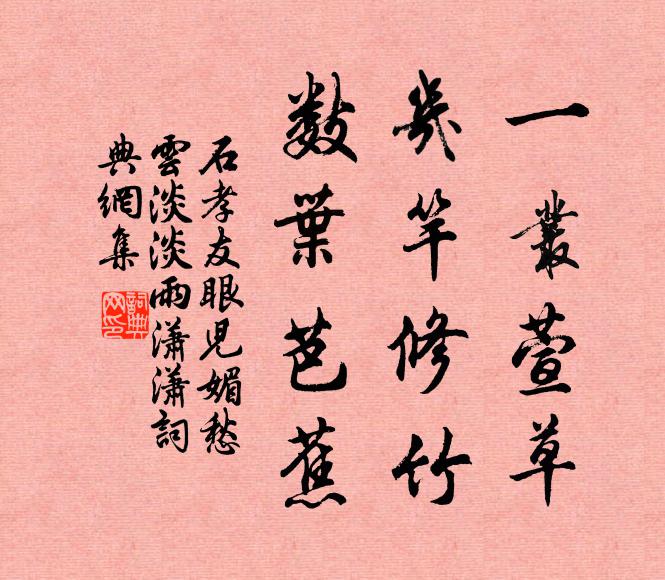 一叢萱草
幾竿修竹
數葉芭蕉
石孝友眼兒媚愁
雲淡淡雨瀟瀟詞
典網集
詞典
网印